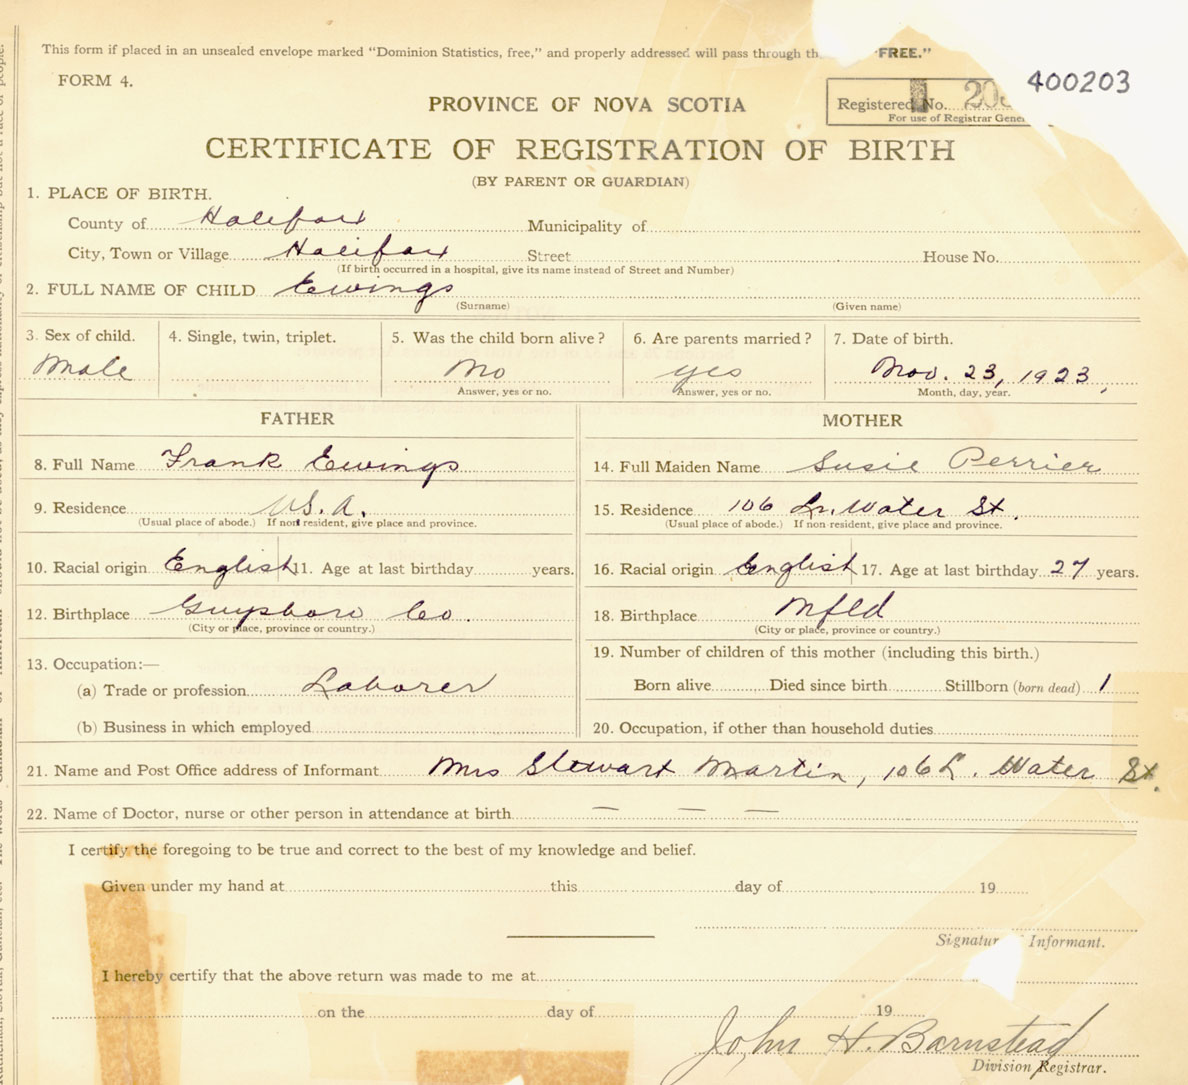 This form if placed in an unsealed envelope marked “Dominion Statistics, free,” and properly addressed will pass through th “FREE.”
FORM 4.
400203
PROVINCE OF NOVA SCOTIA
Registered No. 203
For use of Registrar Gene
CERTIFICATE OF REGISTRATION OF BIRTH
(BY PARENT OR GUARDIAN)
1. PLACE OF BIRTH.
County of Halifax Municipality of
City, Town or Village Halifax Street House No.
(If birth occurred in a hospital, give its name instead of Street and Number)
2. FULL NAME OF CHILD Ewings
(Surname) (Given name)
3. Sex of child. 4. Single, twin, triplet. 5. Was the child born alive? 6. Are parents married? 7. Date of birth.
Male No yes Nov. 23, 1923,
Answer, yes or no. Answer, yes or no. Month, day, year.
FATHER MOTHER
8. Full Name Frank Ewings 14. Full Maiden Name Susie Perrier
9. Residence U.S.A. 15. Residence 106 Lr. Water St.
(Usual place of abode.) If non resident, give place and province. (Usual place of abode.) If non-resident, give place and province.
10. Racial origin English 11. Age at last birthday years. 16. Racial origin English 17. Age at last birthday 27 years.
12. Birthplace Guysboro Co. 18. Birthplace Nfld
(City or place, province or country.) (City or place, province or country.)
19. Number of children of this mother (including this birth.)
13. Occupation:—
(a) Trade or profession Laborer Born alive Died since birth Stillborn (born dead) 1
(b) Business in which employed 20. Occupation, if other than household duties
21. Name and Post Office address of Informant Mrs Stewart Martin, 106 L. Water St.
22. Name of Doctor, nurse or other person in attendance at birth — — —
I certify the foregoing to be true and correct to the best of my knowledge and belief.
Given under my hand at this day of 19
Signatur f Informant.
I hereby certify that the above return was made to me at
on the day of 19
John H. Barnstead
Division Registrar.